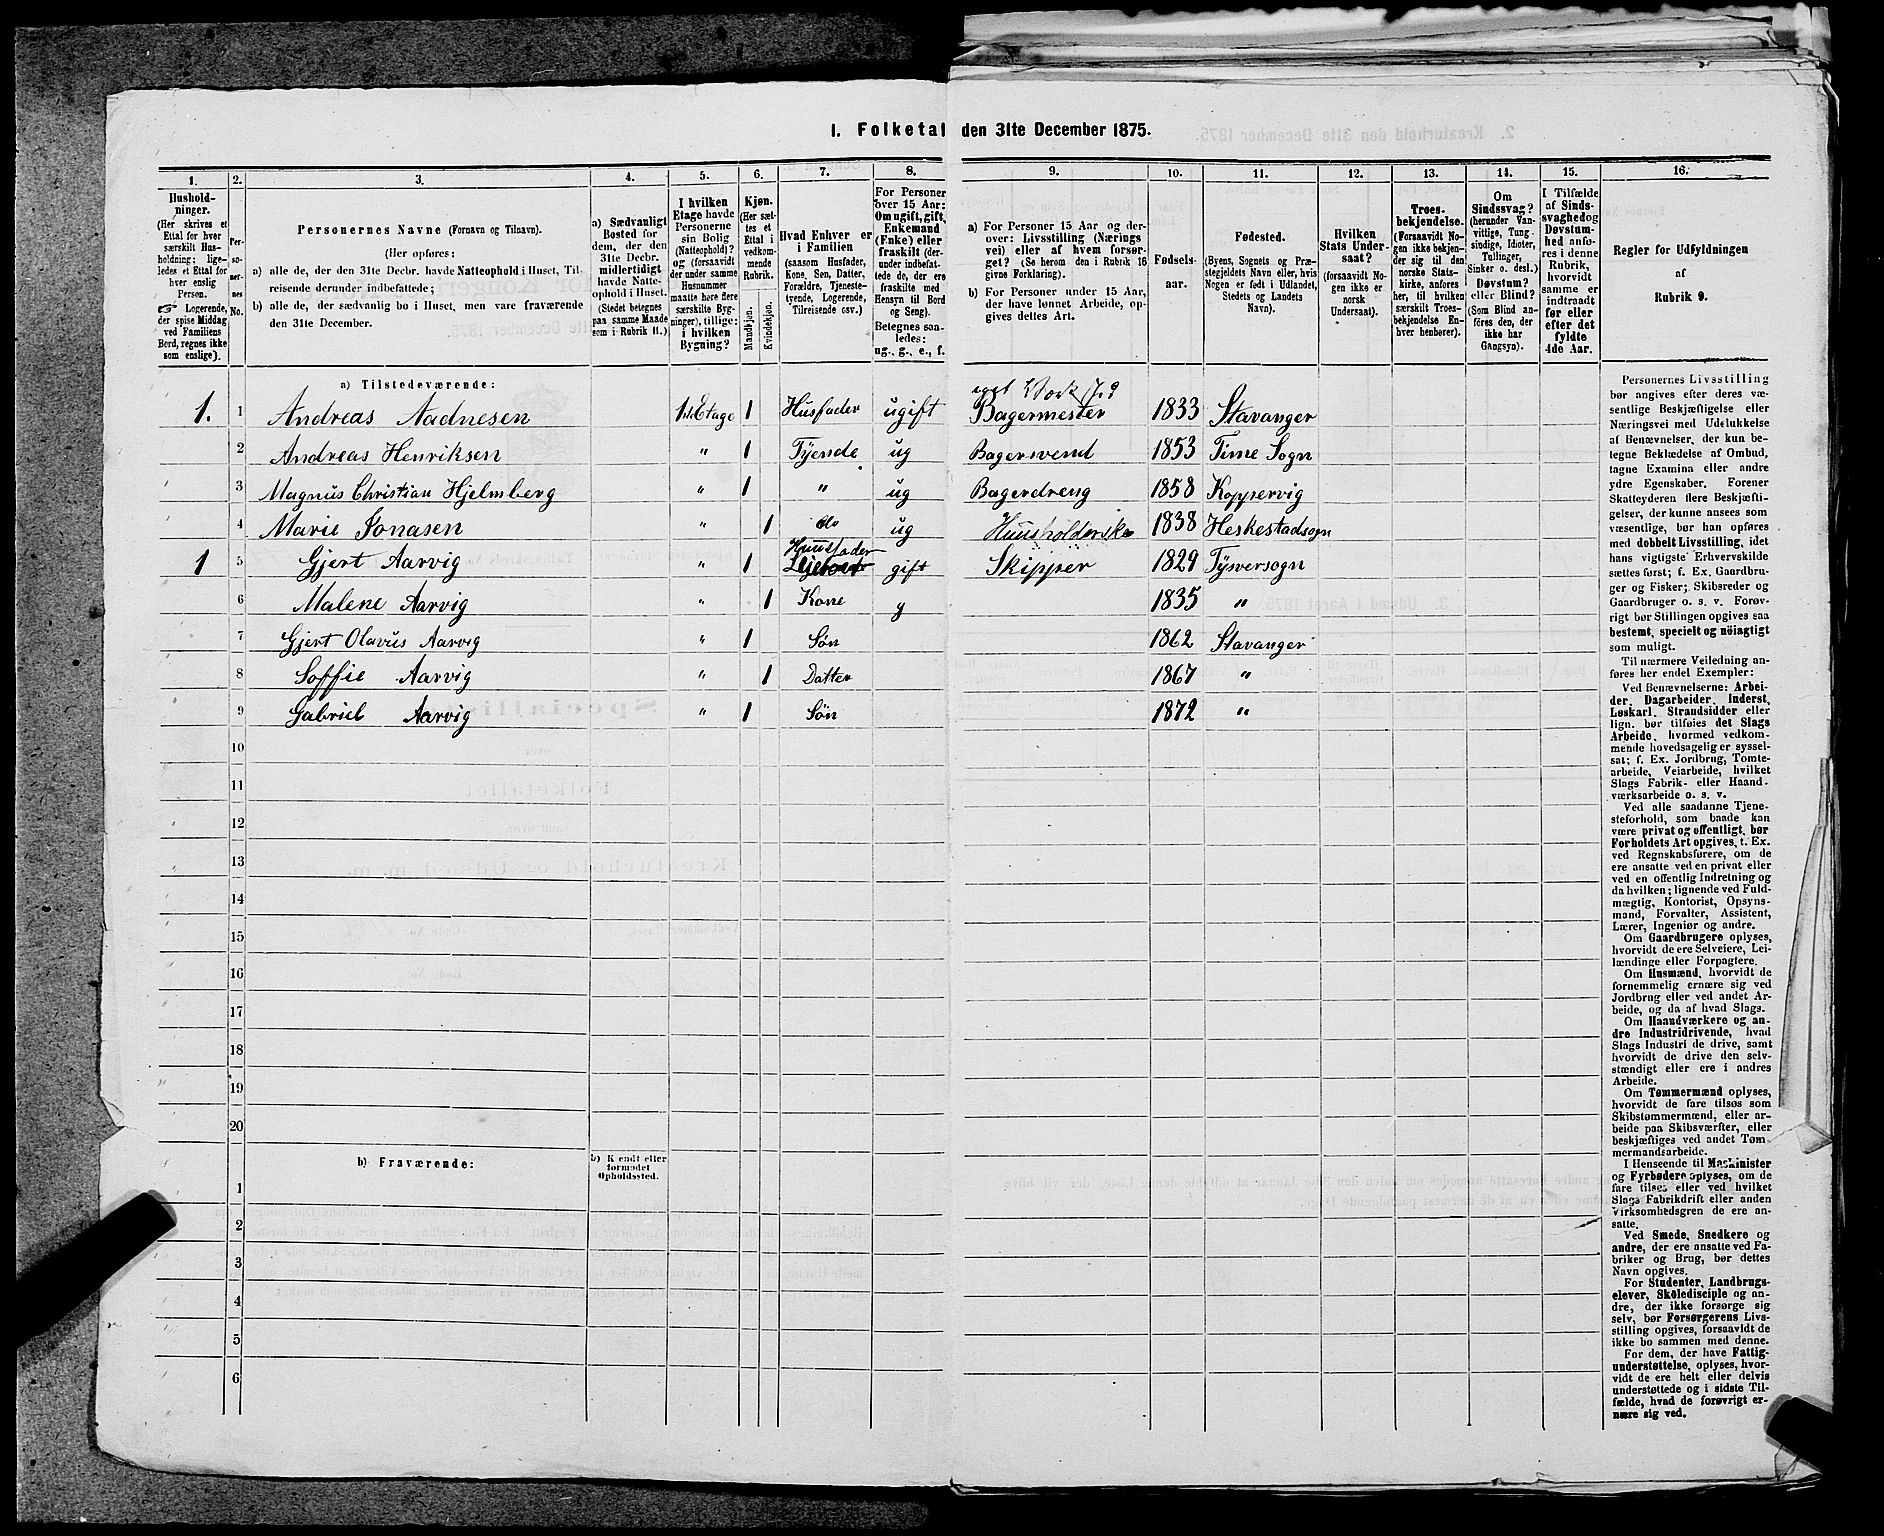 1. Folketal den 31te December 1875.
1. 2. 3. 4. 5. 6. 7. 8. 9. 10. 11. 12. 13. 14. 15. 16.
Hushold-
ninger.
(Her skrives et
Ettal for hver
særskilt Hus-
holdning; lige-
ledes et Ettal for
hver enslig
Person.
☞ Logerende,
der spise Middag
ved Familiens
Bord, regnes ikke
som enslige).
Per-
so-
ner-
nes
No.
Personernes Navne (Fornavn og Tilnavn).
(Her opføres:
a) alle de, der den 31te Decbr. havde Natteophold i Huset, Til-
reisende derunder indbefattede;
b) alle de, der sædvanlig bo i Huset, men vare fraværende
den 31te December.
a) Sædvanligt
Bosted for
dem, der den
31te Decbr.
midlertidigt
havde Natte-
ophold i Huset.
(Stedet betegnes
paa samme Maade
som i Rubrik 11.)
I hvilken
Etage havde
Personerne
sin Bolig
(Natteophold)?
og (forsaavidt
der under samme
Husnummer
maatte høre flere
særskilte Byg-
ninger), tillige:
i hvilken
Bygning?
Kjøn.
(Her sæt-
tes et
Ettal i
vedkom-
mende
Rubrik.
Mandkjøn.
Kvindekjøn.
Hvad Enhver er
i Familien
(saasom Husfader,
Kone, Søn, Datter,
Forældre, Tjeneste-
tyende, Logerende,
Tilreisende osv.)
For Personer
over 15 Aar:
Om ugift, gift,
Enkemand
(Enke) eller
fraskilt (der-
under indbefat-
tede de, der ere
fraskilte med
Hensyn til Bord
og Seng).
Betegnes saa-
ledes:
ug., g., e., f.
a) For Personer 15 Aar og der-
over: Livsstilling (Nærings
vei) eller af hvem forsør-
get? (Se herom den i Rubrik 16
givne Forklaring).
b) For Personer under 15 Aar,
der have lønnet Arbeide, op-
gives dettes Art.
Fødsels-
aar.
Fødested.
(Byens, Sognets og Præ-
stegjeldets Navn eller, hvis
Nogen er født i Udlandet,
Stedets og Landets
Navn).
Hvilken
Stats Under-
saat?
(forsaavidt No-
gen ikke er
norsk
Undersaat).
Troes-
bekjendelse.
(Forsaavidt No-
gen ikke bekjen-
der sig til den
norske Stats-
kirke, anføres
her, til hvilken
særskilt Troes-
bekjendelse En-
hver henhører).
Om
Sindssvag?
(herunder Van-
vittige, Tung-
sindige, Idioter,
Tullinger,
Sinker o. desl.)
Døvstum?
eller Blind?
(Som Blind an-
føres den, der
ikke har
Gangsyn).
I Tilfælde
af Sinds-
svaghed og
Døvstum-
hed anfø-
res i denne
Rubrik,
hvorvidt
samme er
indtraadt
før eller
efter det
fyldte
4de Aar.
Regler for Udfyldningen
af
Rubrik 9.
a) Tilstedeværende:
1. 1 Andreas Aadnesen 1st Etage 1 Husfader ugift Bagermester 1833 Stavanger
2 Andreas Henriksen " 1 Tyende ug Bagersvend 1853 Time Sogn
3 Magnus Christian Hjelmberg " 1 " ug Bagerdreng 1858 Koppervig
4 Marie Jonasen " 1 do ug Huusholderske 1838 Heskestadsogn
Huusfader
1 5 Gjert Aarvig " 1 gift Skipper 1829 Tysversogn
6 Malene Aarvig " 1 Kone g 1835 "
7 Gjert Olavus Aarvig " 1 Søn 1862 Stavanger
8 Soffie Aarvig " 1 Datter 1867 "
9 Gabriel Aarvig " 1 Søn 1872 "
10
11
12
13
14
15
16
17
18
19
20
b) Fraværende:
b) Kjendt eller
formodet
Opholdssted.
1
2
3
4
5
6
Personernes Livsstilling
bør angives efter deres væ-
sentlige Beskjæftigelse eller
Næringsvei med Udelukkelse
af Benævnelser, der kun be-
tegne Beklædelse af Ombud,
tagne Examina eller andre
ydre Egenskaber. Forener
Skatteyderen flere Beskjæfti-
gelser, der kunne ansees som
væsentlige, bør han opføres
med dobbelt Livsstilling, idet
hans vigtigste Erhvervskilde
sættes først; f. Ex. Gaardbru-
ger og Fisker; Skibsreder og
Gaardbruger o. s. v. Forøv-
rigt bør Stillingen opgives saa
bestemt, specielt og nöiagtigt
som muligt.
Til nærmere Veiledning an-
føres her endel Exempler:
Ved Benævnelserne: Arbei-
der, Dagarbeider, Inderst,
Løskarl, Strandsidder eller
lign. bør tilføies det Slags
Arbeide, hvormed vedkom-
mende hovedsagelig er syssel-
sat; f. Ex. Jordbrug, Tomte-
arbeide, Veiarbeide, hvilket
Slags Fabrik- eller Haand-
værksarbeide o. s. v.
Ved alle saadanne Tjene-
steforhold, som baade kan
være privat og offentligt, bør
Forholdets Art opgives, f. Ex.
ved Regnskabsførere, om de
ere ansatte ved en privat eller
ved en offentlig Indretning og
da hvilken; lignende ved Fuld-
mægtig, Kontorist, Opsyns-
mand, Forvalter, Assistent,
Lærer, Ingeniør og andre.
Om Gaardbrugere oplyses,
hvorvidt de ere Selveiere, Lei-
lændinge eller Forpagtere.
Om Husmænd, hvorvidt de
fornemmelig ernære sig ved
Jordbrug eller ved andet Ar-
beide, og da af hvad Slags.
Om Haandværkere og an-
dre Industridrivende, hvad
Slags Industri de drive, samt
hvorvidt de drive den selv-
stændigt eller ere i andres
Arbeide.
Om Tømmermænd oplyses,
hvorvidt de fare tilsøs som
Skibstømmermænd, eller ar-
beide paa Skibsværfter, eller
beskjæftiges ved andet Tøm-
mermandsarbeide.
I Henseende til Maskinister
og Fyrbødere oplyses, om de
fare tilsøs eller ved hvilket
Slags Fabrikdrift eller anden
Virksomhedsgren de ere an-
satte.
Ved Smede, Snedkere og
andre, der ere ansatte ved Fa-
briker og Brug, bør dettes
Navn opgives.
For Studenter, Landbrugs-
elever, Skoledisciple og an-
dre, der ikke forsørge sig
selv, bør Forsørgerens Livs-
stilling opgives, forsaavidt de
ikke bo sammen med denne.
For dem, der have Fattig-
understøttelse, oplyses, hvor-
vidt de ere helt eller delvis
understøttede og i sidste Til-
fælde, hvad de forøvrigt er-
nære sig ved.